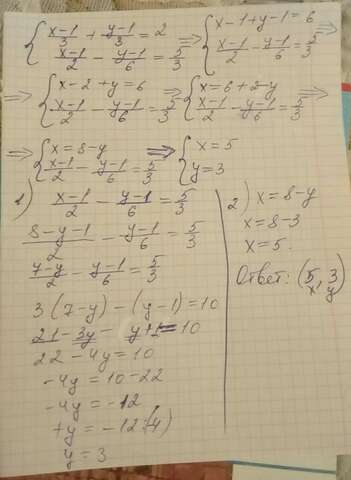 { (x-1)/3 + (y-1)/3 = 2 => { x-1+y-1=6 =>
{ (x-1)/2 - (y-1)/6 = 5/3 { (x-1)/2 - (y-1)/6 = 5/3
=> { x-2+y=6 => { x=6+2-y =>
{ (x-1)/2 - (y-1)/6 = 5/3 { (x-1)/2 - (y-1)/6 = 5/3
=> { x=8-y => { x=5
{ (x-1)/2 - (y-1)/6 = 5/3 { y=3
1) (x-1)/2 - (y-1)/6 = 5/3
(8-y-1)/2 - (y-1)/6 = 5/3
(7-y)/2 - (y-1)/6 = 5/3
3(7-y)-(y-1)=10
21-3y-y+1=10
22-4y=10
-4y=10-22
-4y=-12
+y=-12:(4)
y=3
2) x=8-y
x=8-3
x=5.
Ответ: (5, 3)
x y